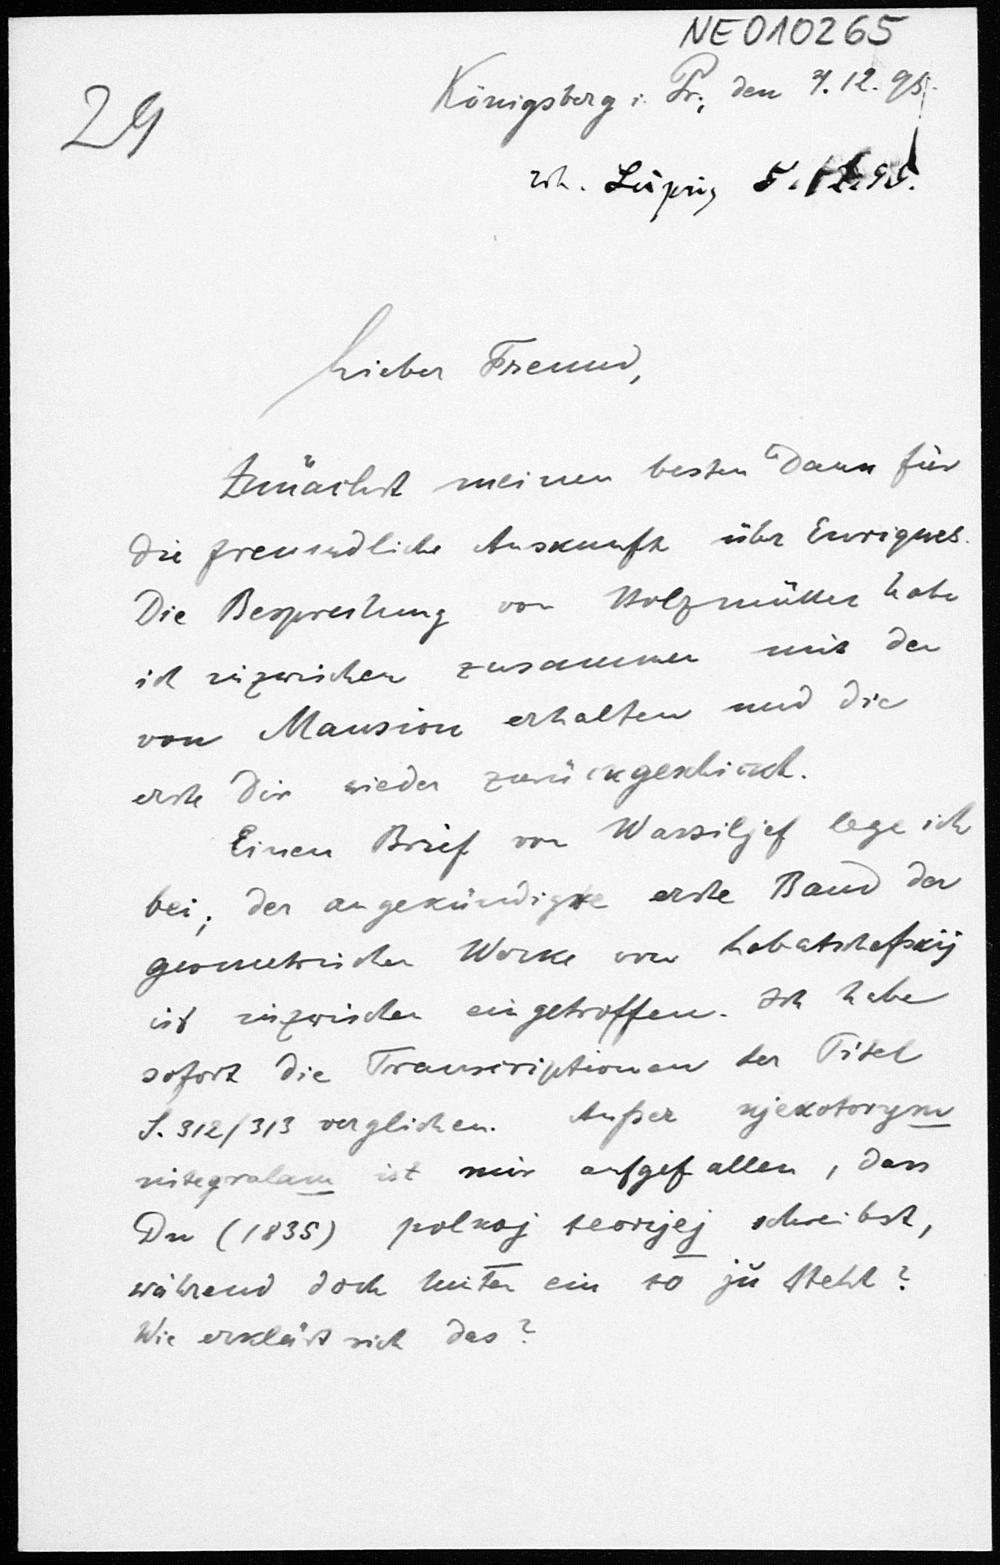 NE010265
29
Königsberg i. Pr., den 4.12.95.
erh. Leipzig 5.12.95.
Lieber Freund,
Zunächst meinen besten Dank für
die freundliche Auskunft über Enriques.
Die Besprechung von Holzmüller habe
ich inzwischen zusammen mit der
von Mansion erhalten und die
erste Dir wieder zurückgeschickt.
Einen Brief von Wassiljef lege ich
bei; der angekündigte erste Band der
geometrischen Werke von Lobatschefskij
ist inzwischen eingetroffen. Ich habe
sofort die Transcriptionen der Titel
S. 312/313 verglichen. Außer njekotorym
integralam ist mir aufgefallen, dass
Du (1835) polnoj teorijej schreibst,
während doch hinten ein ju steht?
Wie erklärt sich das?